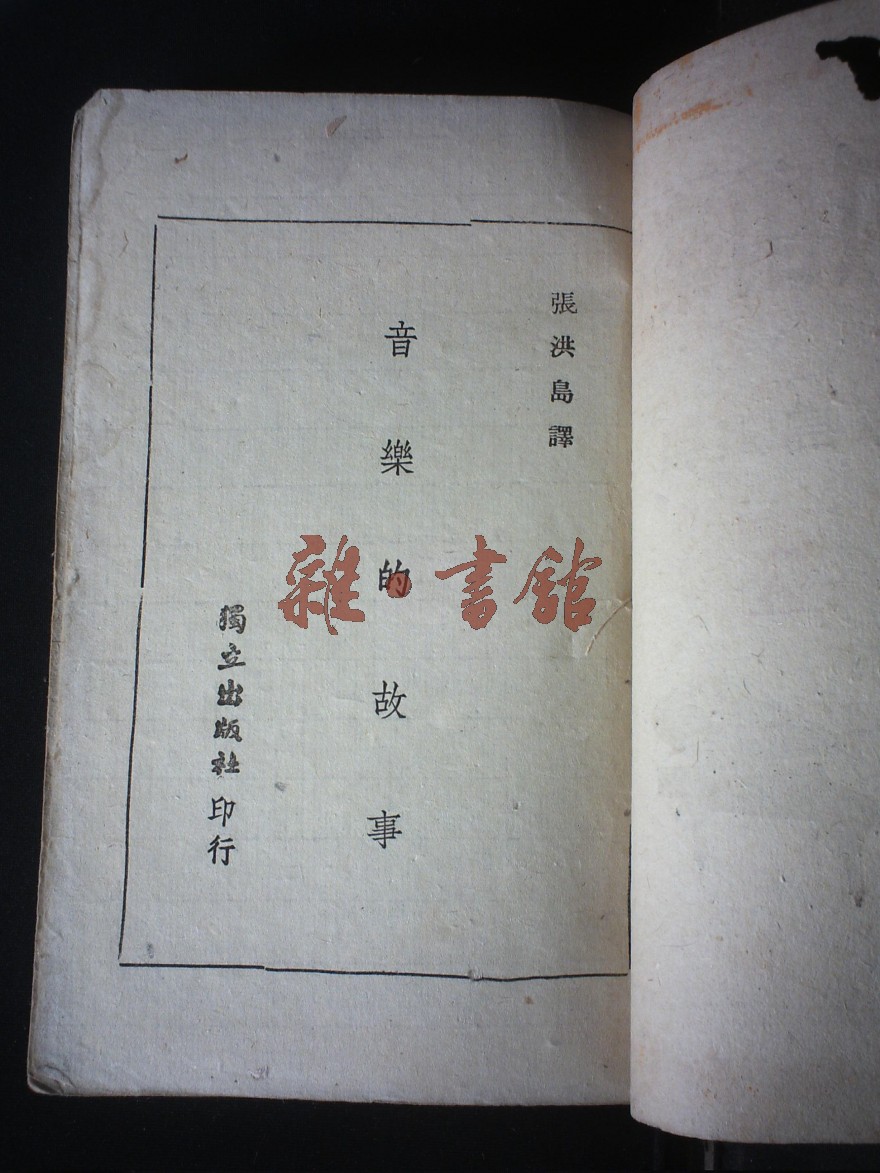 張洪島譯
音樂的故事
獨立出版社印行
雜·書館